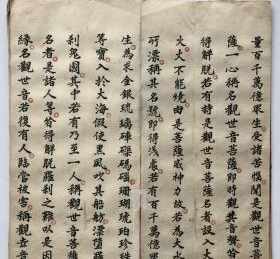 量百千萬億眾生受諸苦惱聞是觀世音菩
薩一心稱名觀世音菩薩即時觀其音聲皆
得解脫若有持是觀世音菩薩名者設入大
火火不能燒由是菩薩威神力故若為大水
所漂稱其名號即得淺處若有百千萬億眾
生為求金銀琉璃硨磲瑪瑙珊瑚琥珀珍珠
等寶入於大海假使黑風吹其船舫漂墮羅
剎鬼國其中若有乃至一人稱觀世音菩薩
名者是諸人等皆得解脫羅剎之難以是因
緣名觀世音若復有人臨當被害稱觀世音